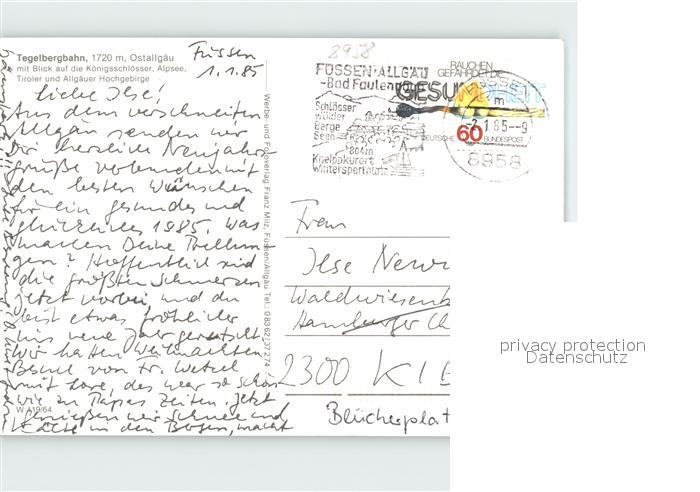 Tegelbergbahn, 1720 m, Ostallgäu
mit Blick auf die Königsschlösser, Alpsee,
Tiroler und Allgäuer Hochgebirge
Füssen
1.1.85
Liebe Ilse!
Aus dem verschneiten
Allgäu senden wir
Dir herzliche Neujahrs
grüße verbunden mit
den besten Wünschen
für ein gesundes und
glückliches 1985. Was
machen Deine Prellun-
gen? Hoffentlich sind
die größten Schmerzen
jetzt vorbei und du
bist etwas fröhlicher
ins neue Jahr gerutscht.
Wir hatten Weihnachten
Besuch von Fr. Wetzel
mit Love, das war so schön
wie zu Papas Zeiten. Jetzt
genießen wir Schnee und
Kälte in den Bergen, macht
W A19/64
Werbe- und Fotoverlag Franz Milz, Füssen/Allgäu Tel.: 08362/37 274
8958
FÜSSEN·ALLGÄU
-Bad Faulenbach
Schlösser
Wälder
Berge
Seen
804m
Kneippkurort
Wintersportplatz
RAUCHEN
GEFÄHRDET DIE
GESUNDHEIT
60
DEUTSCHE BUNDESPOST
m
-2.1.85-9
8958
Frau
Ilse
Hamburger Ch
2300 KIE
Blücherplat
privacy protection
Datenschutz